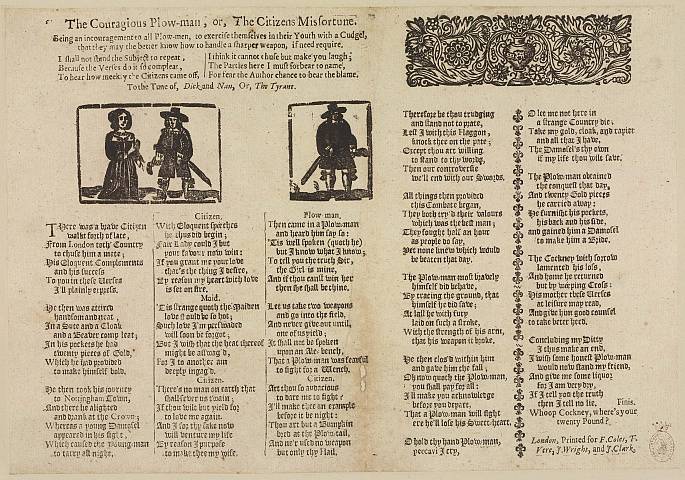 The Couragious Plow-man, or, The Citizens Misfortune.
Being an incouragement to all Plow-men, to exercise themselves in their Youth with a Cudgel,
that they may the better know how to handle a sharper weapon, if need require.
I shall not spend the Subject to repeat,
Because the Verses do it so compleat,
To hear how meekly the Citizens came off,
I think it cannot chuse but make you laugh;
The Parties here I must forbear to name,
For fear the Author chance to bear the blame.
To the Tune of, Dick and Nan, Or, The Tyrant.
THere was a brave Citizen
walkt forth of late,
From London toth' Country
to chuse him a mate;
His Eloquent Complements
and his success
To you in these Verses
I'll plainly express.
He then was attired
handsom and neat,
In a Sute and a Cloak
and a Beaver compleat;
In his pockets he had
twenty pieces of Gold,
Which he had provided
to make himself bold.
He then took his journey
to Nottingham Town,
And there he alighted
and drank at the Crown;
Whereas a young Damosel
appeared in his sight,
Which caused the Young-man
to tarry all night.
Citizen.
With Eloquent speeches
he thus did begin;
Fair Lady could I but
your favour now win:
If you grant me your love
that's the thing I desire,
By reason my heart with love
is set on fire.
Maid.
'Tis strange quoth the Maiden
love should be so hot;
Such love I'm perswaded
will soon be forgot;
But I with that the heat thereof
might be asswag'd,
For I to another am
deeply ingag'd.
Citizen.
There's no man on earth that
shall sever us twain;
If thou wilt but yield for
to love me again.
And I for thy sake now
will venture my life
By reason I purpose
to make thee my wife.
Plow-man.
Then came in a Plow-man
and heard him say so:
'Tis well spoken (quoth he)
but I know what I know;
To tell you the truth Sir,
the Girl is mine,
And if thou canst win her
then she shall be thine.
Let us take two weapons
and go into the field,
And never give out until,
one of us yield;
It shall not be spoken
upon an Ale-bench,
That a Plow-man was fearful
to fight for a Wench.
Citizen.
Art thou so audacious
to dare me to fight?
I'll make thee an example
before it be night:
Thou art but a Bumpkin
bred at the Plow-tail,
And ne'r used no weapon
but only thy flail.
Therefore be thou trudging
and stand not to prate,
Lest I with this Flaggon,
knock thee on the pate;
Except thou art willing
to stand to thy words,
Then our controversie
we'll end with our Swords.
All things then provided
this Combate began,
They both try'd their valours
which was the best man;
They fought half an hour
as people do say,
Yet none knew which would
be beaten that day.
The Plow-man most bravely
himself did behave,
By tracing the ground, that
himself he did save;
At last he with fury
laid on such a stroke,
With the strength of his arm,
that his weapon it broke.
He then clos'd within him
and gave him the fall;
Oh now quoth the Plow-man,
you shall pay for all:
I'll make you acknowledge
before you depart,
That a Plow-man will fight
ere he'll lose his Sweet-heart.
O hold thy hand Plow-man,
peccavi I cry,
O let me not here in
a strange Country die;
Take my gold, cloak, and rapier
and all that I have,
The Damosel's thy own
if my life thou wilt save.
The Plow-man obtained
the conquest that day,
And twenty Gold pieces
he carried away:
He furnisht his pockets,
his back and his side,
and gained him a Damosel
to make him a Bride.
The Cockney with sorrow
lamented his loss,
And home he returned
but by weeping Cross:
His mother these Verses
at leisure may read,
And give him good counsel
to take better heed.
Concluding my Ditty
I thus make an end,
With some honest Plow-man
would now stand my friend,
And give me some liquor
for I am very dry,
If I tell you the truth
then I tell no lie.
Finis.
Whoop Cockney, where's your
twenty Pound?
London, Printed for F. Coles, T.
Vere, J. Wright, and J. Clark.